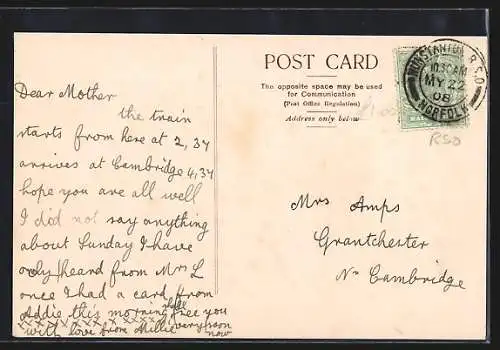 Dear Mother
the train
starts from here at 2,34
arrives at Cambridge 4,34
hope you are all well
I did not say anything
about Sunday I have
only heard from Mrs L
once I had a card from
Addie this morning see you
with love from Millie very soon
now
POST CARD
The opposite space may be used
for Communication
(Post Office Regulation)
Address only below
HUNSTANTON R.S.O.
10.30AM
MY 22
08
NORFOLK
RSO
Mrs Amps
Grantchester
Nr Cambridge